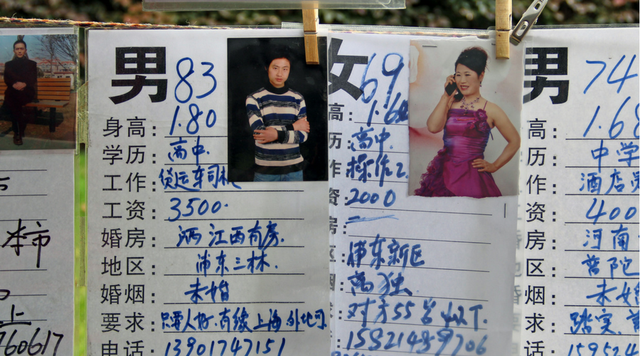 本市
上
760617
男 83
身高: 1.80
学历: 高中
工作: 货运车司机
工资: 3500
婚房: 江西有房
地区: 浦东三林
婚烟: 未婚
要求: 只要人好.有缘上海外地可
电话: 13901747151
女 69
高: 1.6
历: 高中
作: 操作工
资: 2000
房:
浦东新区
离独
对方55岁以下.
15821489706
男 74
身高: 1.6
学历: 中学
作: 酒店
工资: 400
婚房: 河南
地区: 普陀
婚烟: 未婚
要求: 踏实
电话: 15952